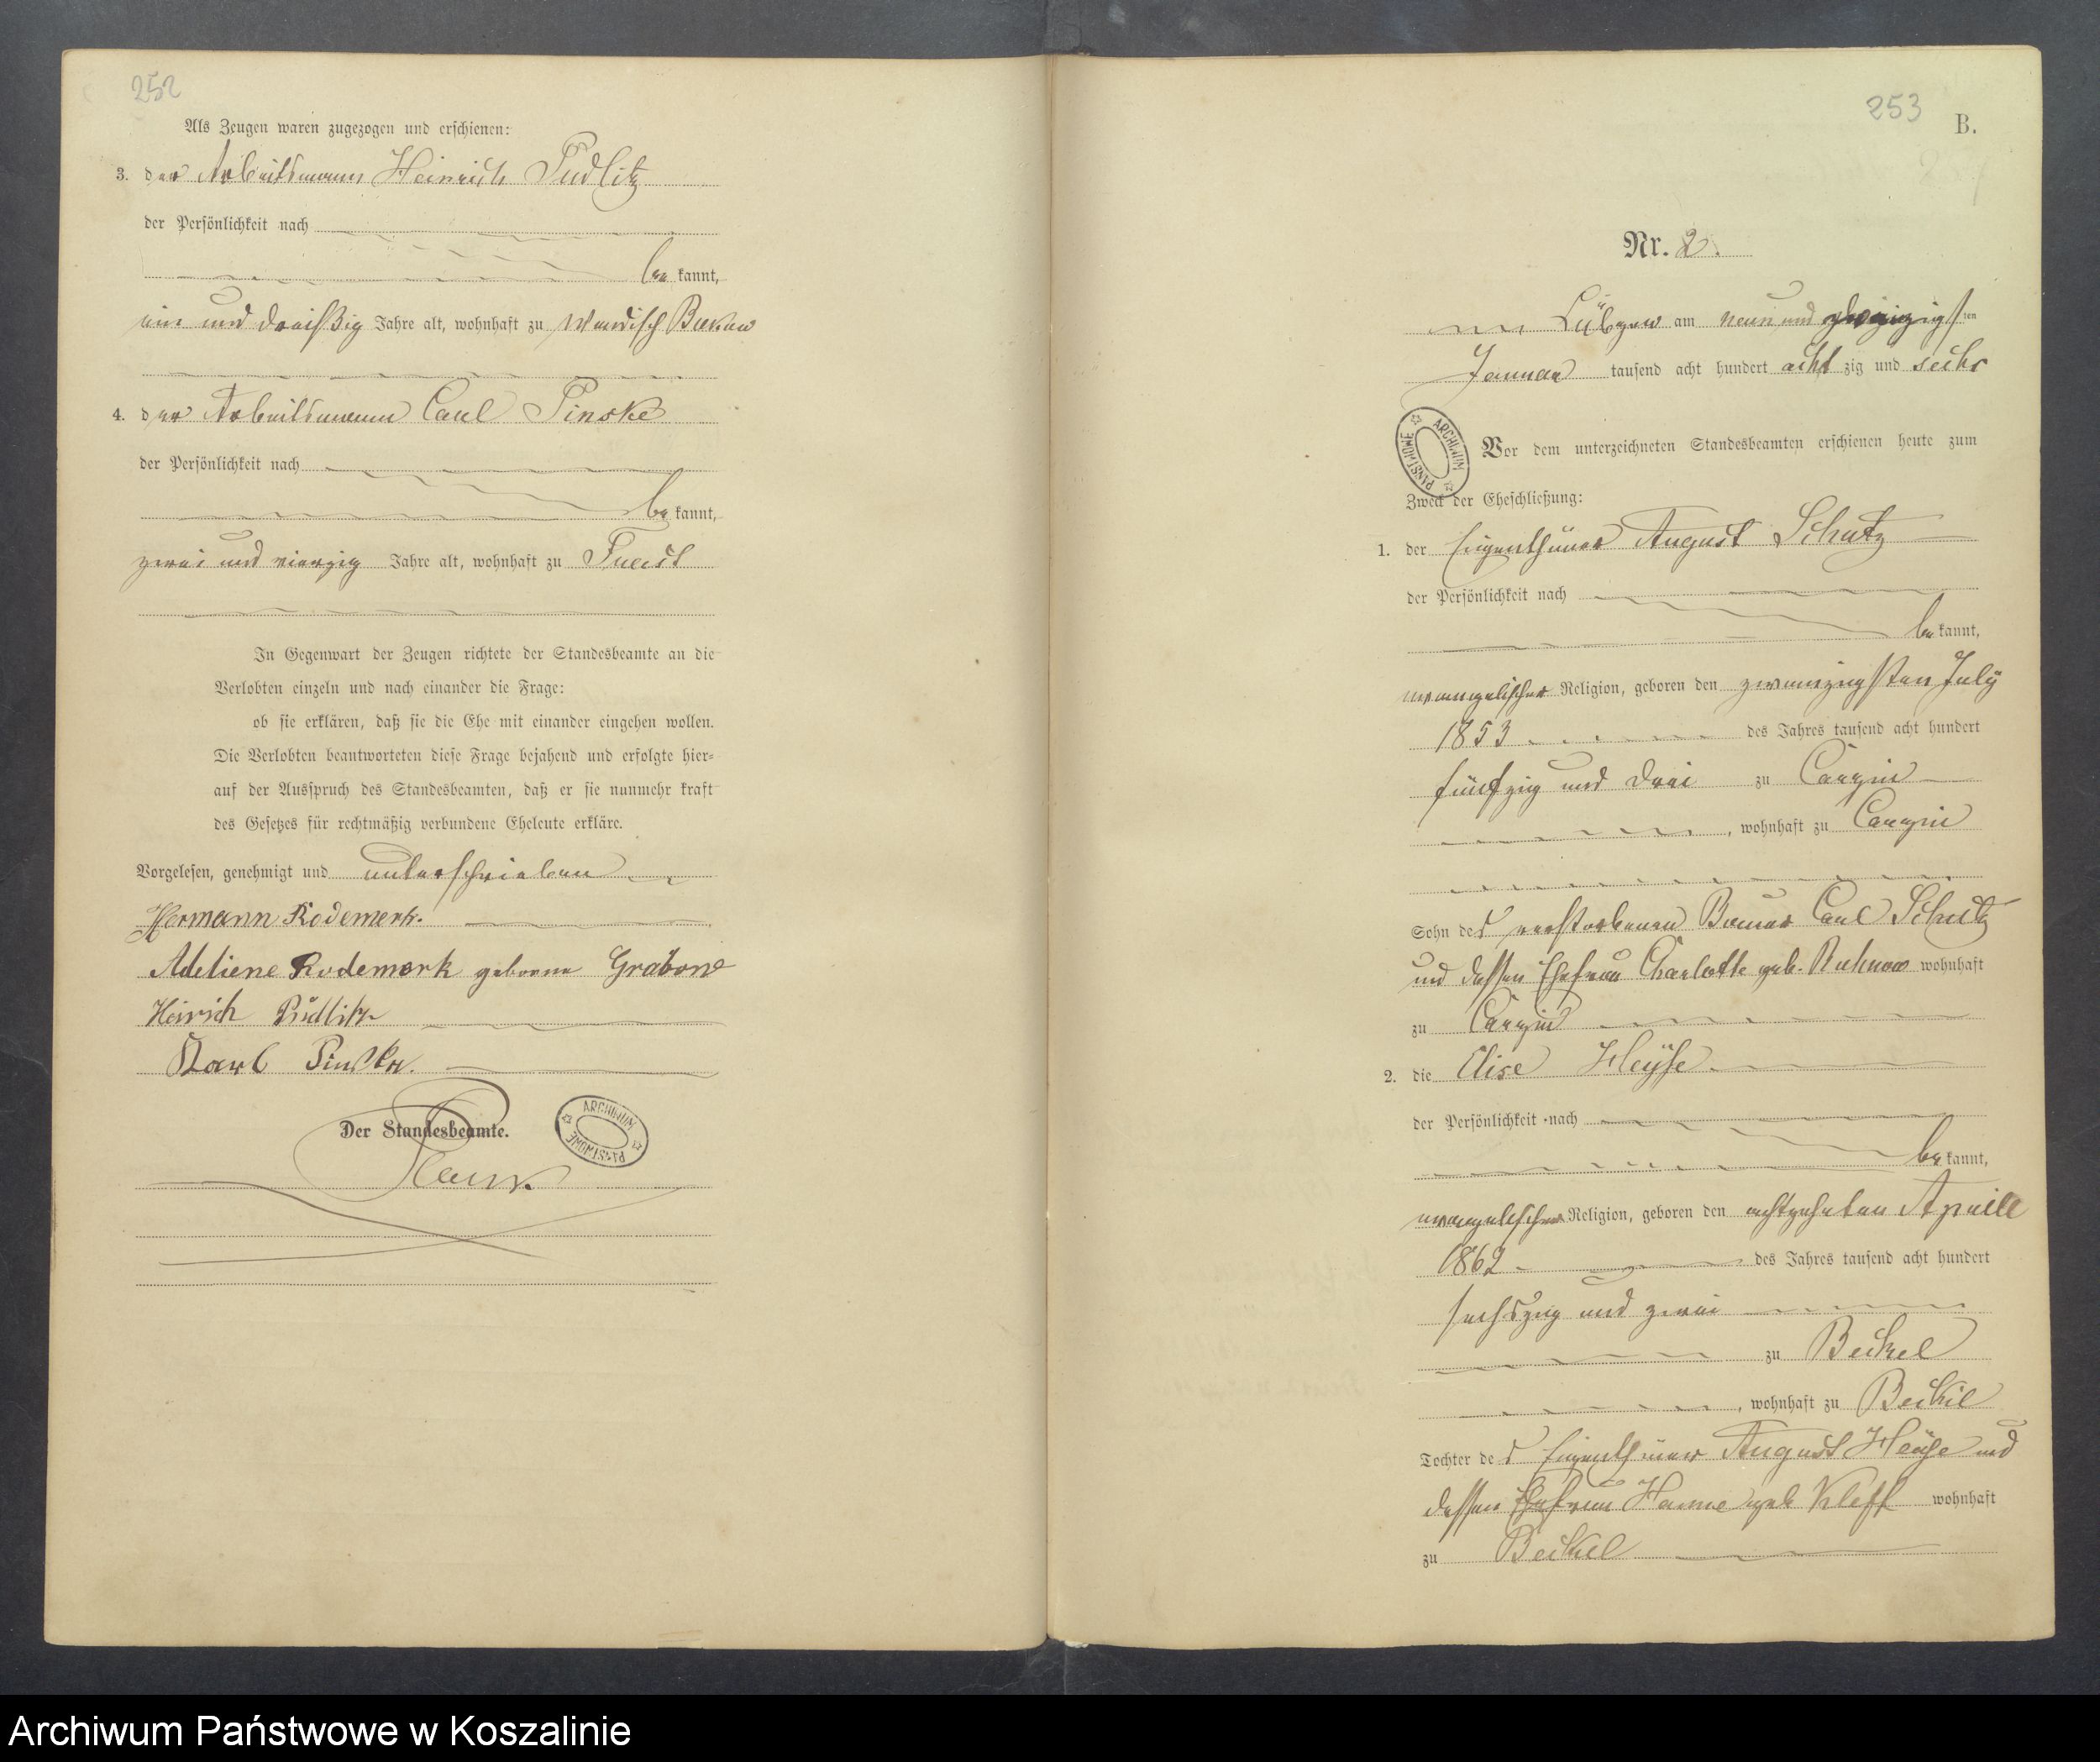 252
Als Zeugen waren zugezogen und erschienen:
3. der Arbeitsmann Heinrich Pudlitz
der Persönlichkeit nach
be kannt,
ein und dreißig Jahre alt, wohnhaft zu Wendisch Bukow
4. der Arbeitsmann Carl Pinske
der Persönlichkeit nach
be kannt,
zwei und vierzig Jahre alt, wohnhaft zu
In Gegenwart der Zeugen richtete der Standesbeamte an die
Verlobten einzeln und nach einander die Frage:
ob sie erklären, daß sie die Ehe mit einander eingehen wollen.
Die Verlobten beantworteten diese Frage bejahend und erfolgte hier-
auf der Ausspruch des Standesbeamten, daß er sie nunmehr kraft
des Gesetzes für rechtmäßig verbundene Eheleute erkläre.
Vorgelesen, genehmigt und unterschrieben
Hermann Rodemerk.
Adeliene Rodemerk geborene Grabow
Heinrich Pudlitz
Karl Pinske.
Der Standesbeamte.
ARCHIWUM PAŃSTWOWE
253
B.
Nr. 2.
Lübzow am neun und zwanzigsten
Januar tausend acht hundert acht zig und sechs
ARCHIWUM PAŃSTWOWE
Vor dem unterzeichneten Standesbeamten erschienen heute zum
Zweck der Eheschließung:
1. der Eigenthümer August Schutz
der Persönlichkeit nach
be kannt,
evangelischer Religion, geboren den zwanzigsten July
1853 des Jahres tausend acht hundert
fünfzig und drei zu Carzin
, wohnhaft zu Carzin
Sohn des verstorbenen Bauer Carl Schutz
und dessen Ehefrau Charlotte geb. Ruhnow wohnhaft
zu Carzin
2. die Elise Heyse
der Persönlichkeit nach
be kannt,
evangelischer Religion, geboren den achtzehnten Aprill
1862 des Jahres tausend acht hundert
sechszig und zwei
zu Beckel
, wohnhaft zu Beckel
Tochter des Eigenthümer August Heyse und
dessen Ehefrau Hanne geb Kleff wohnhaft
zu Beckel
Archiwum Państwowe w Koszalinie